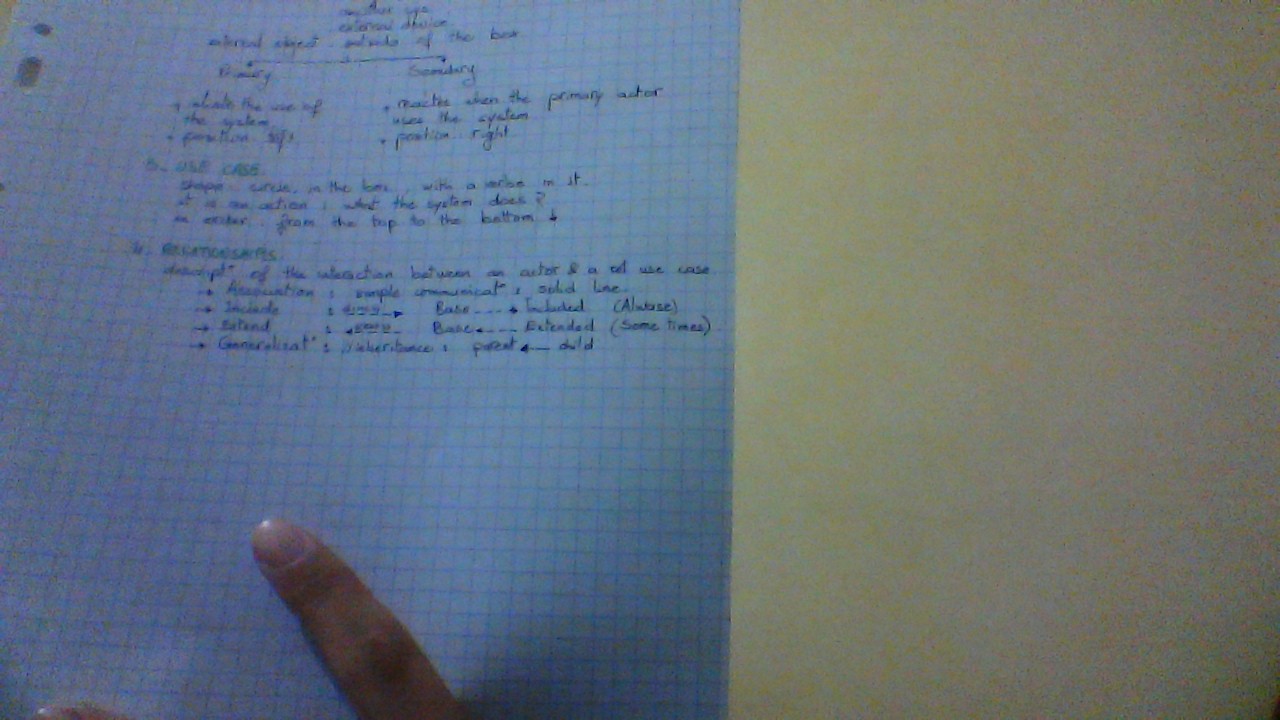 another
external device
external object : outside of the box
Primary Secondary
the use of + reactes when the primary actor
the system uses the system
+ position + position : right
USE CASE
shape : circle, in the box, with a in it.
it is an action : what the system does ?
in order : from the top to the bottom ↓
4. RELATIONSHIPS
descript° of the interaction between an actor & a use case.
→ Association : simple communicat° : solid line.
→ Include : Base ---→ Included (Alwase)
→ Extend : Base ←--- Extended (Some times)
→ Generalizat° : inheritance : parent ←— child